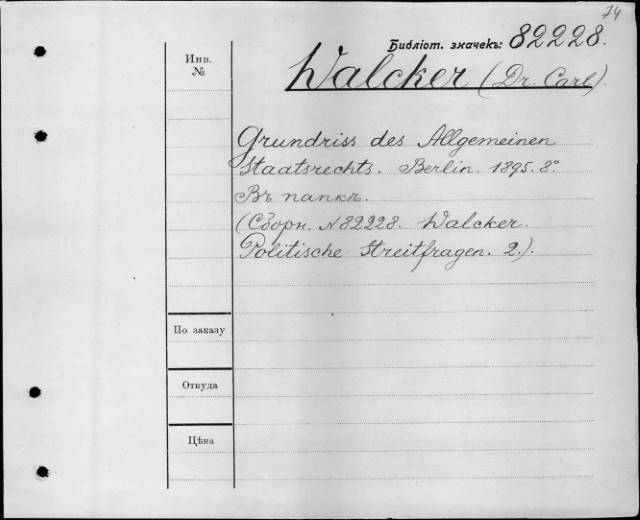 74
Библіот. значекъ: 82228.
Инв.
№
Walcker (Dr. Carl).
Grundriss des Allgemeinen
Staatsrechts. Berlin. 1895. 8°
Въ папкѣ.
(Сборн. № 82228. Walcker.
Politische Streitfragen. 2.).
По заказу
Откуда
Цѣна